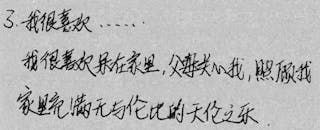 3.我很喜欢……
我很喜欢呆在家里,父母关心我,照顾我
家里充满无与伦比的天伦之乐